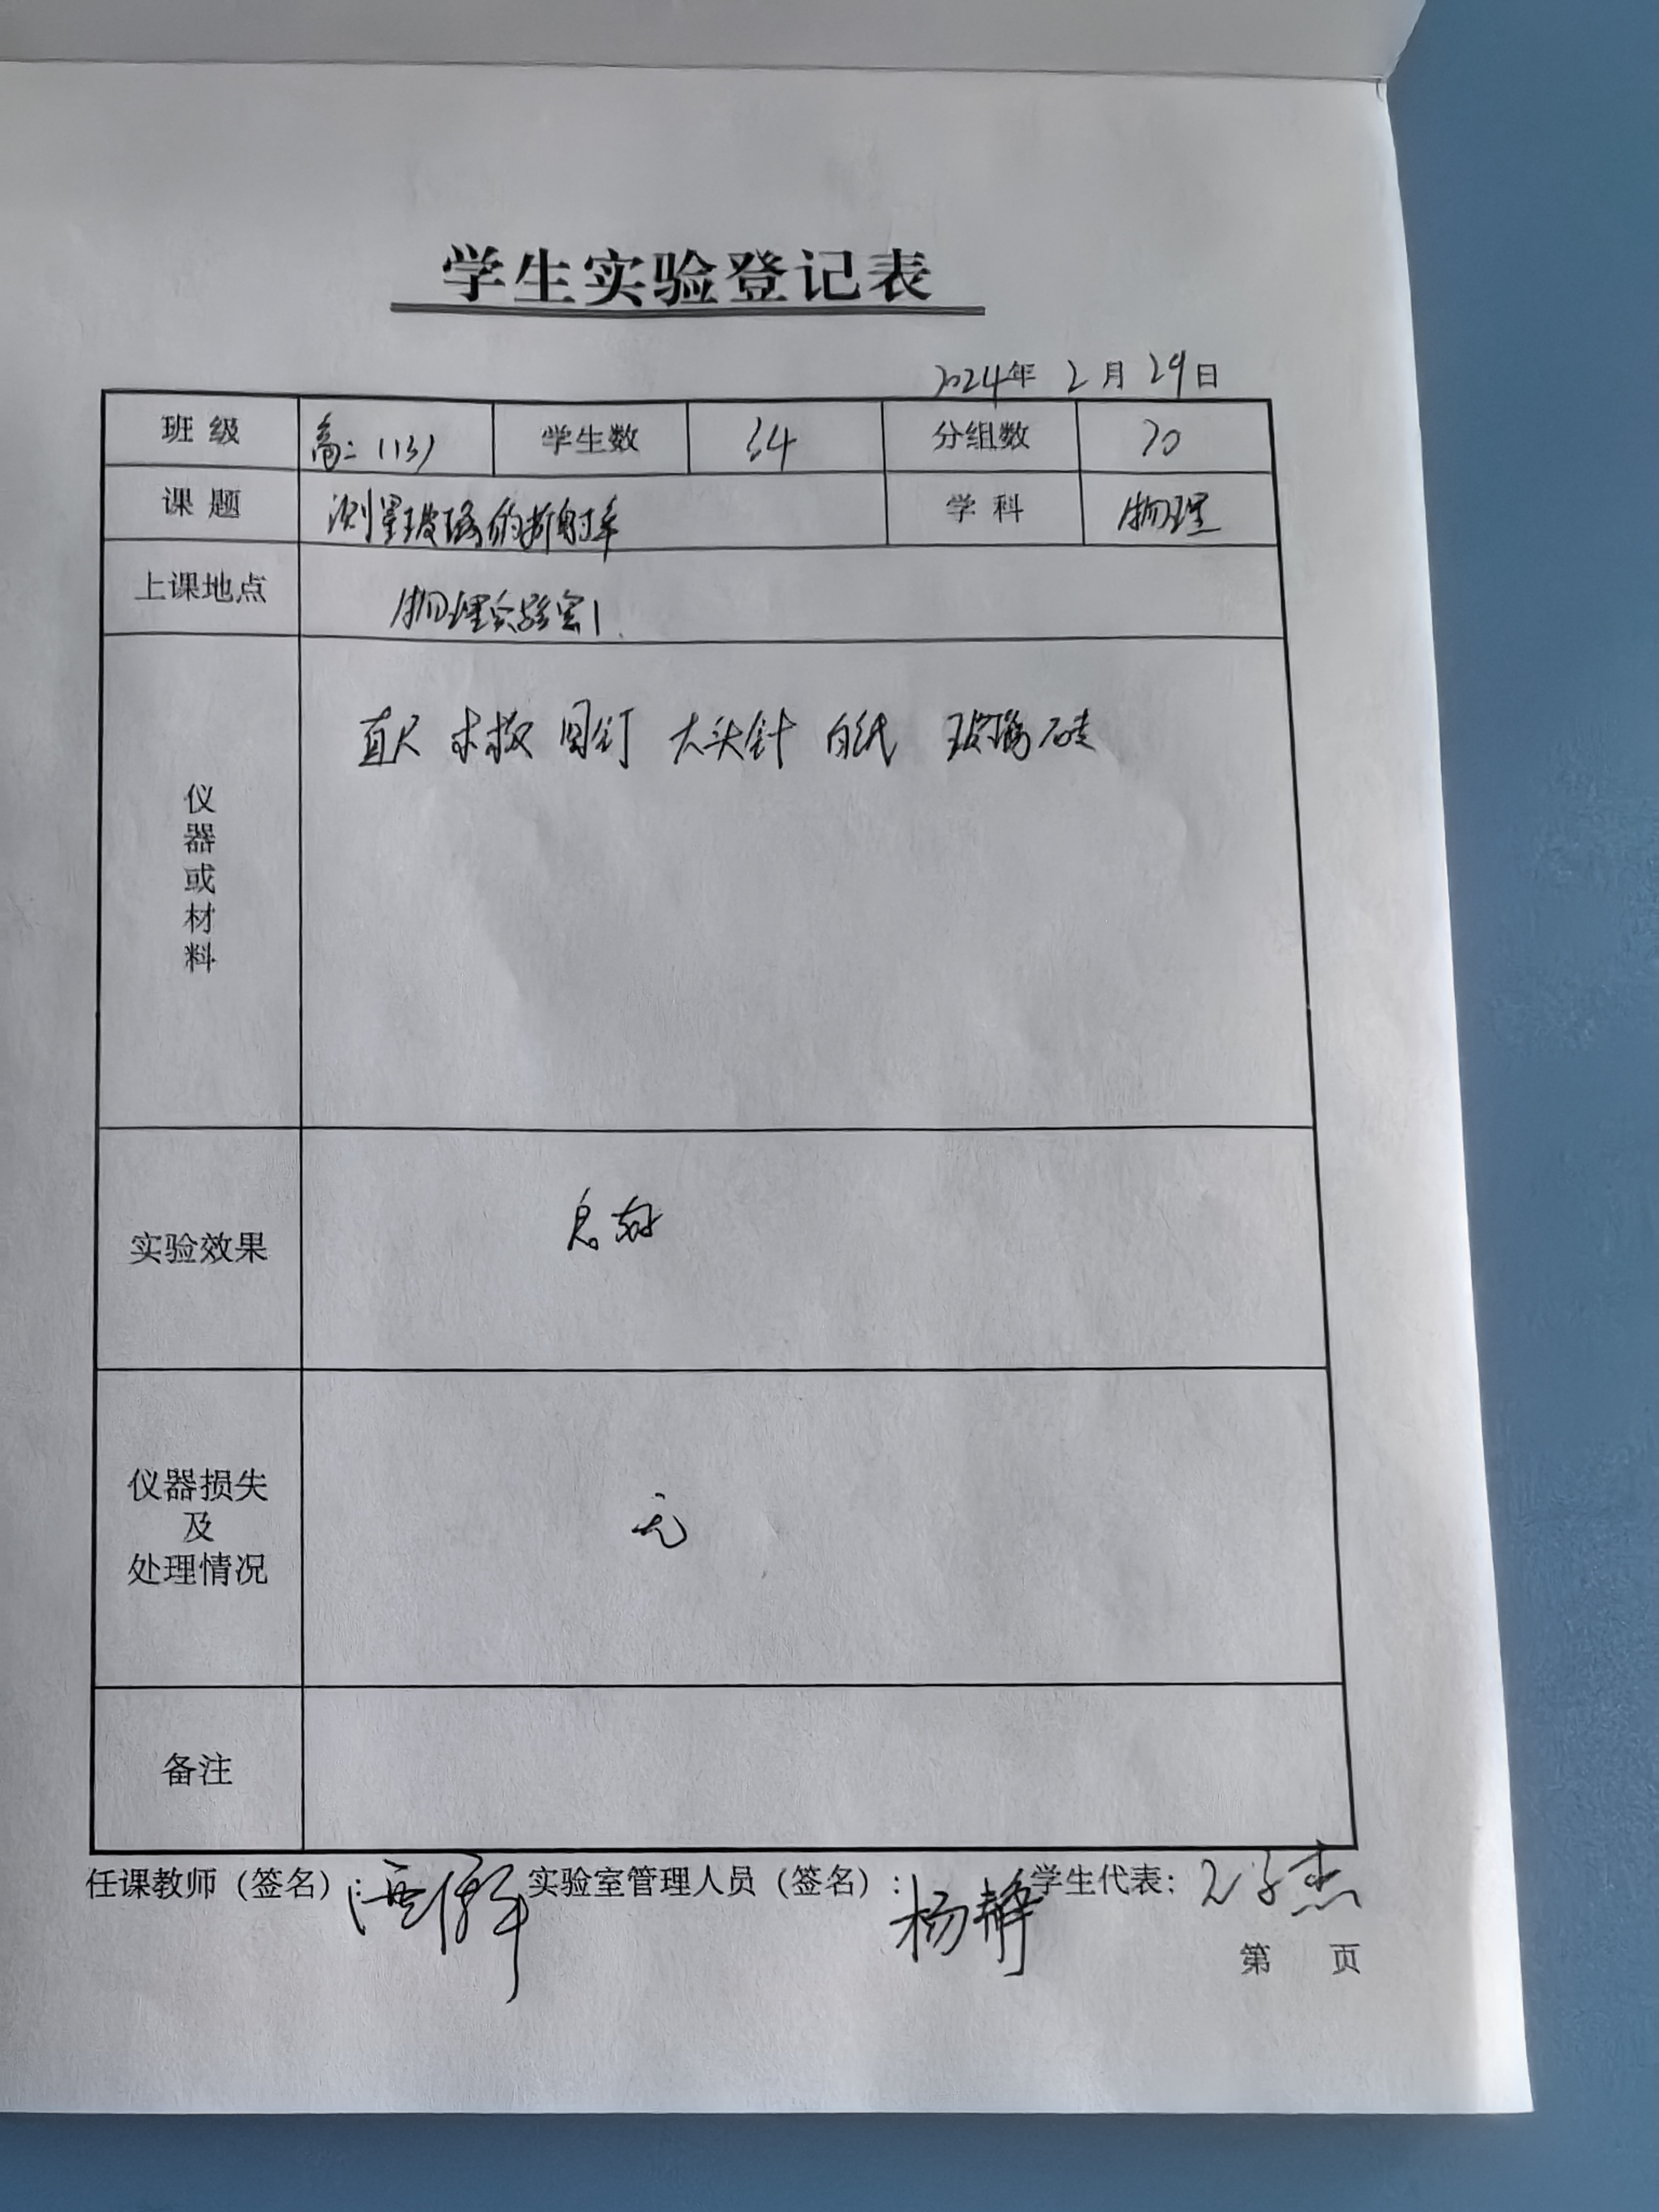 学生实验登记表
2024年 2月 29日
班级 高二(13) 学生数 54 分组数
课题 测量玻璃的折射率 学科 物理
上课地点 物理实验室1
仪器或材料 直尺 木板 图钉 大头针 白纸 玻璃砖
实验效果 良好
仪器损失及处理情况 无
备注
任课教师（签名）： 实验室管理人员（签名）：杨静 学生代表：
第 页